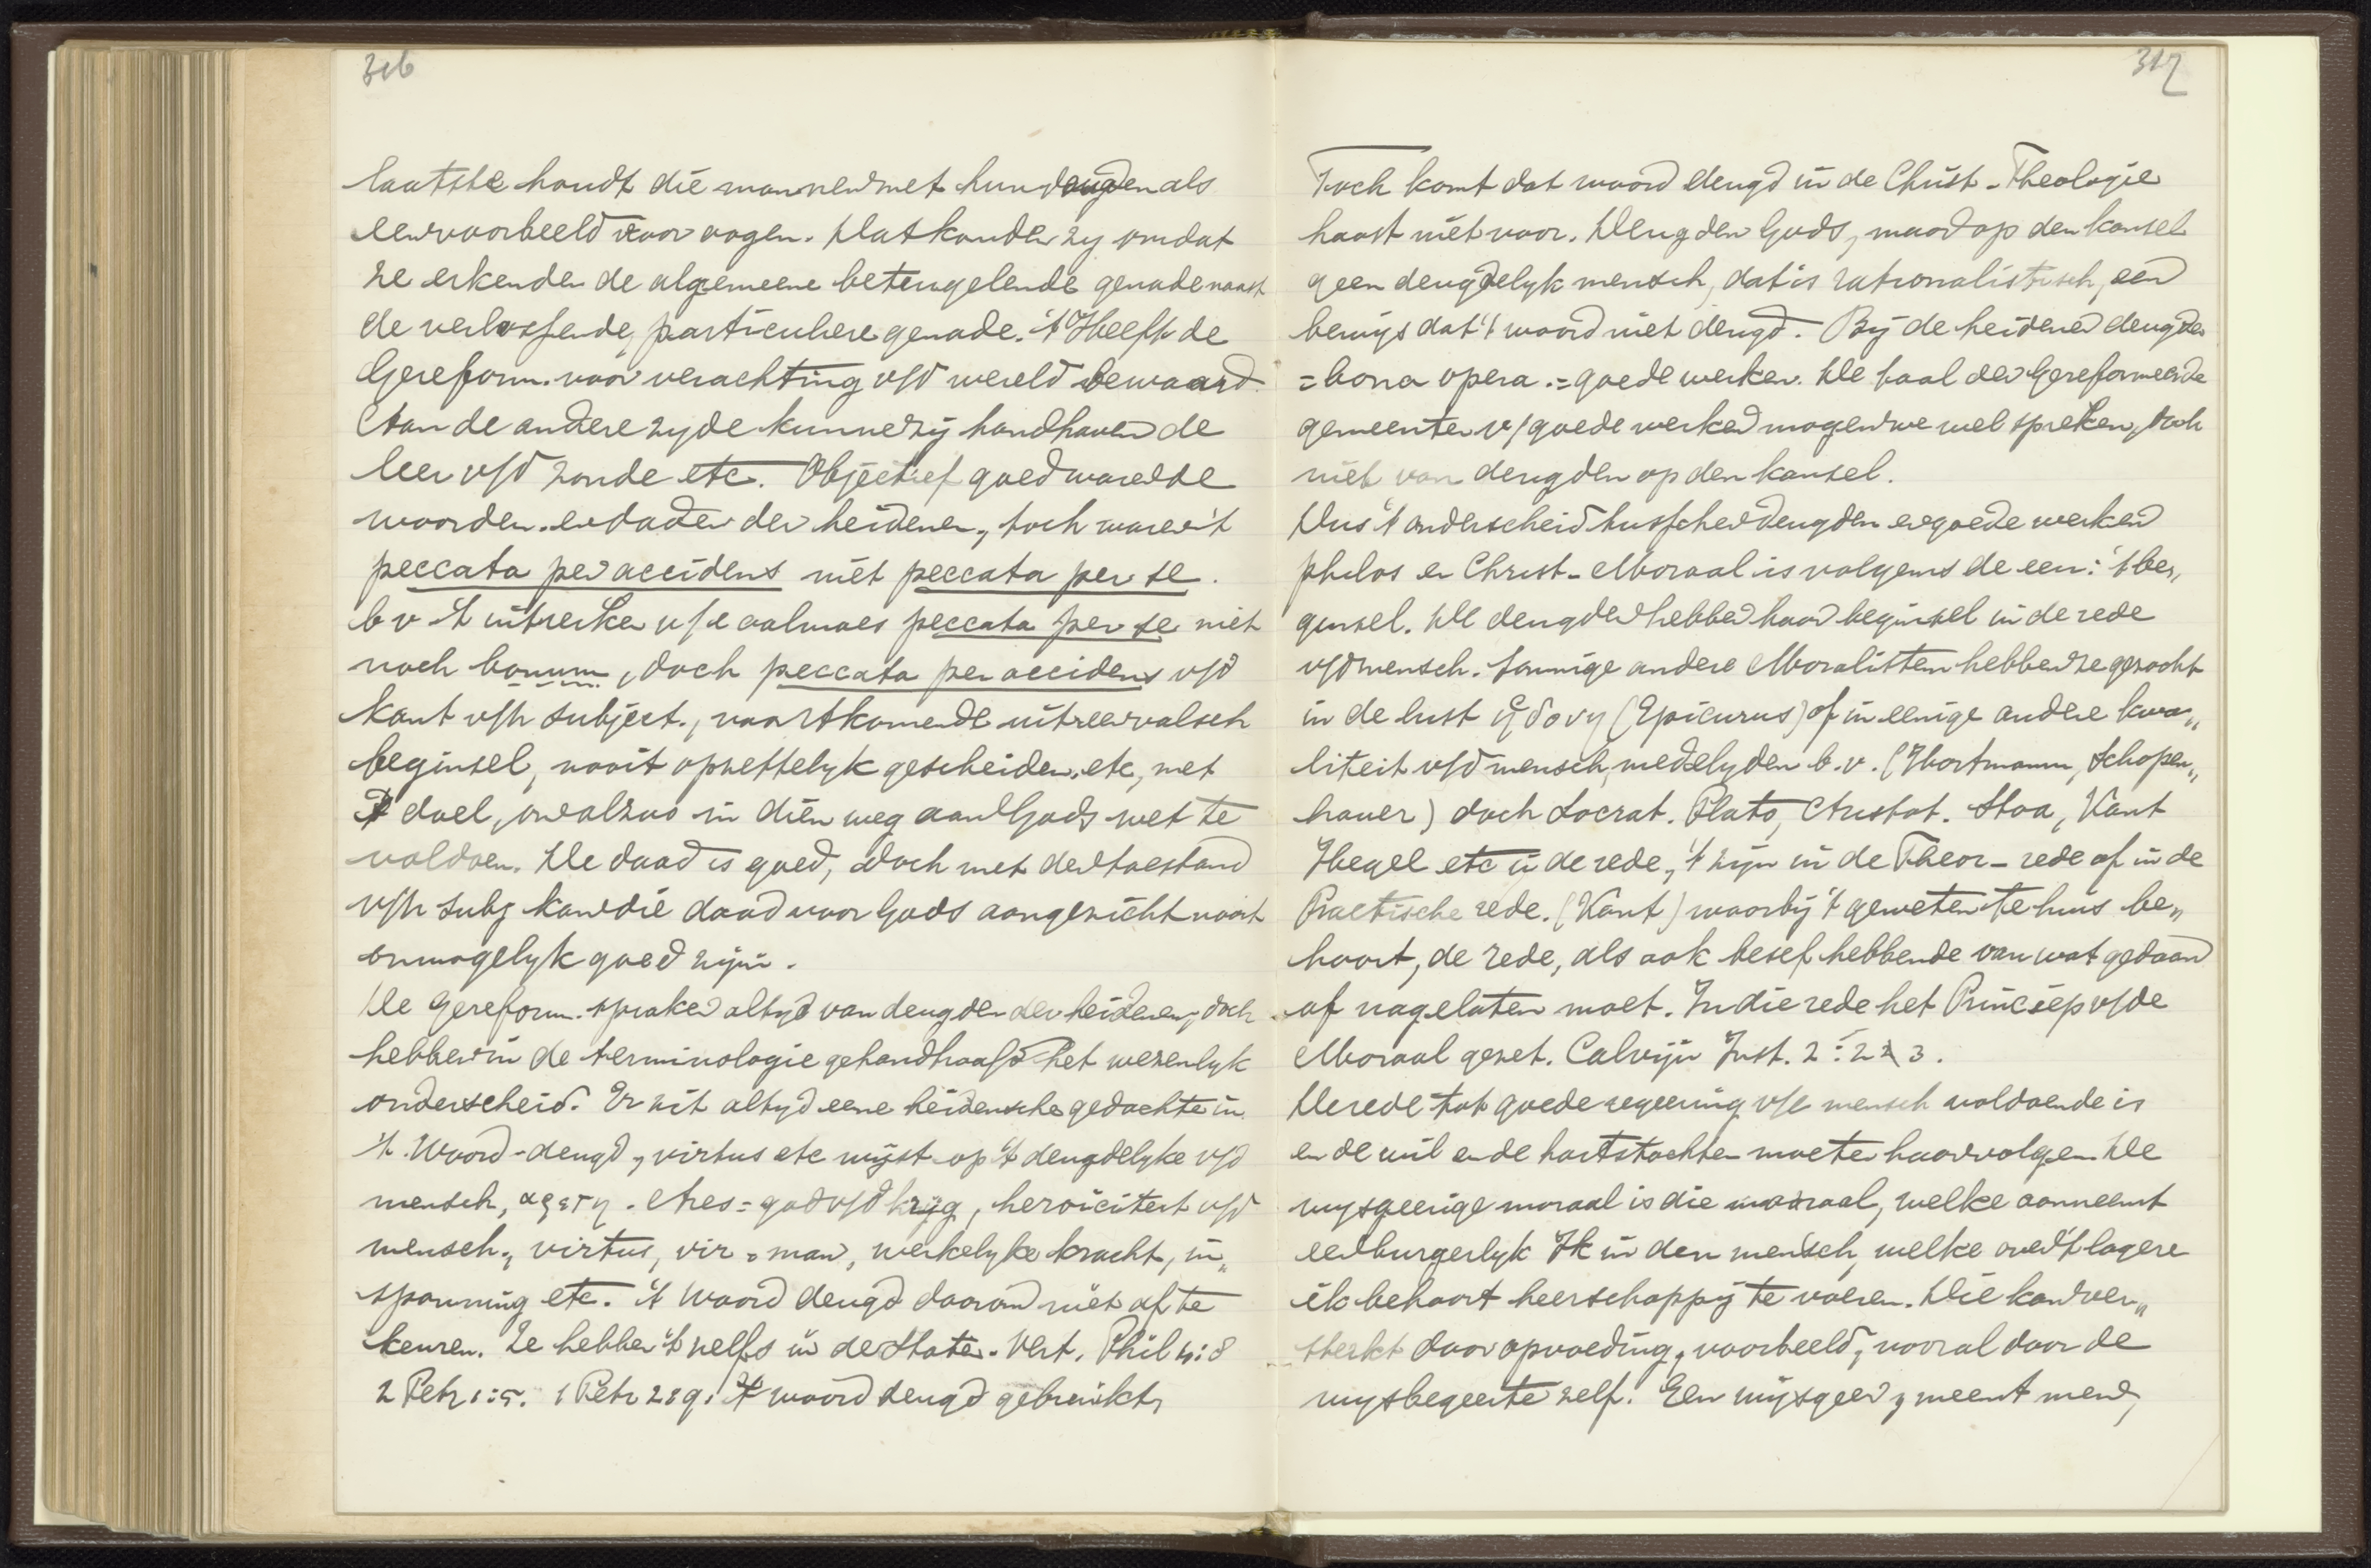 316
laatste houdt die mannen met hun deugden als
een voorbeeld voor oogen. Dat konden zy omdat
ze erkenden de algemeene beteugelende genade naast
de verlossende, particuliere genade. 't Heeft de
Gereform. voor verachting v/d wereld bewaard.
Aan de andere zyde kunnen zij handhaven de
leer v/d zonde etc. Objectief goed waren de
woorden en daden der heidenen, toch waren 't
peccata per accidens niet peccata per se.
b v 't uitreiken v/e aalmoes peccata per se niet
noch bonum, doch peccata per accidens v/d
kant v/h subject., voortkomende uit een valsch
beginsel, nooit opzettelyk gescheiden, etc, met
't doel, om alzoo in dien weg aan Gods wet te
voldoen. De daad is goed, doch met den toestand
v/h subj kan die daad voor Gods aangezicht nooit
onmogelyk goed zijn.
De Gereform. spraken altyd van deugden der heidenen, doch
hebben in de terminologie gehandhaafd het wezenlyk
onderscheid. Er zit altyd eene heidensche gedachte in
't Woord-deugd, virtus etc wijst op 't deugdelyke v/d
mensch, αρετη. Ares = god v/d krijg, heroiciteit v/d
mensch, virtus, vir = man, werkelyke kracht, in„
spanning etc. 't Woord deugd daarom niet af te
keuren. Ze hebben 't zelfs in de Staten. Vert. Phil 4:8
2 Petr 1:5. 1 Petr 2:9. 't woord deugd gebruikt,
317
Toch komt dat woord deugd in de Christ-Theologie
haast niet voor. Deugden Gods, maar op den kansel
geen deugdelyk mensch, dat is rationalistisch, een
bewijs dat 't woord niet deugd. Bij de heidenen deugden
= bona opera. = goede werken. De taal der Gereformeerde
gemeenten v/goede werken mogen we wel spreken, doch
niet van deugden op den kansel.
Dus 't onderscheid tusschen deugden en goede werken
philos en Christ-Moraal is volgens de een: 't be„
ginsel. De deugden hebben haar beginsel in de rede
v/d mensch. Sommige andere Moralisten hebben ze gezocht
in de lust ηδονη (Epicurus) of in eenige andere kwa„
liteit v/d mensch, medelyden b.v. (Hartmann, Schopen„
hauer) doch Socrat. Plato, Aristot. Stoa, Kant
Hegel etc in de rede, 't zijn in de Theor-rede of in de
Practische rede. (Kant) waarbij 't geweten te huis be„
hoort, de rede, als ook besef hebbende van wat gedaan
of nagelaten moet. In die rede het Principe v/de
Moraal gezet. Calvijn Inst. 2:2 3.
De rede tot goede regeering v/e mensch voldoende is
en de wil en de hartstochten moeten haar volgen. De
wysgeerige moraal is die moraal, welke aanneemt
een burgerlyk Ik in den mensch, welke over 't lagere
ik behoort heerschappij te voeren. Die kan ver„
sterkt door opvoeding, voorbeeld, vooral door de
wysbegeerte zelf. Een wijsgeer, meent men,